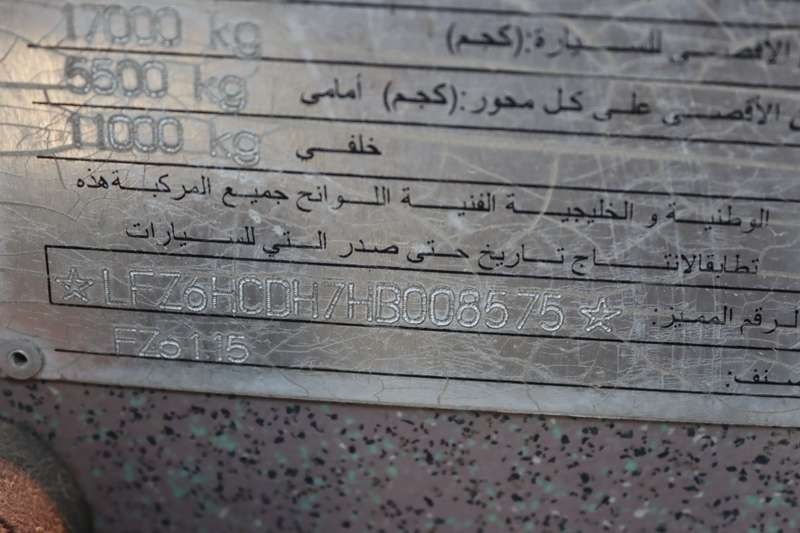 الأقصى للسيارة:(كجم) 17000 kg
الأقصى على كل محور:(كجم) أمامى 5500 kg
خلفي 11000 kg
الوطنية و الخليجية الفنية اللوائح جميع المركبة هذه
تطابقالانتاج تاريخ حتى صدر التي للسيارات
الرقم المميز: ☆LFZ6HCDH7HB008575☆
صنف: FZ6115